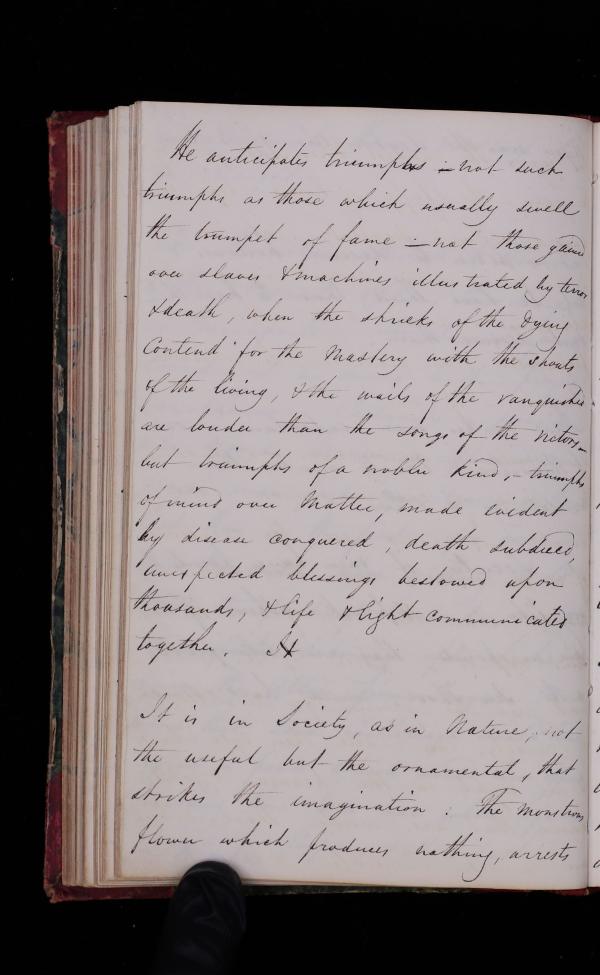 He anticipates triumphs – not such
triumphs as those which usually swell
the trumpet of fame – not those gained
over slaves & machines illustrated by terror
& death, when the shrieks of the dying
contend for the mastery with the shouts
of the living, & the wails of the vanquished
are louder than the songs of the victors –
but triumphs of a nobler kind, – triumphs
of mind over matter, made evident
by disease conquered, death subdued,
unexpected blessings bestowed upon
thousands, & life & light communicated
together. It
It is in Society, as in Nature, not
the useful but the ornamental, that
strikes the imagination. The monstrous
flower which produces nothing, arrests